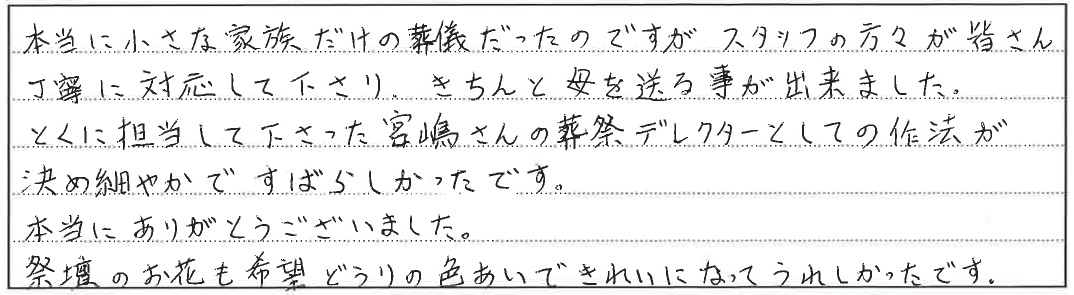 本当に小さな家族だけの葬儀だったのですが スタッフの方々が皆さん
丁寧に対応して下さり、きちんと母を送る事が出来ました。
とくに担当して下さった宮嶋さんの葬祭デレクターとしての作法が
決め細やかですばらしかったです。
本当にありがとうございました。
祭壇のお花も希望どうりの色あいできれいになってうれしかったです。